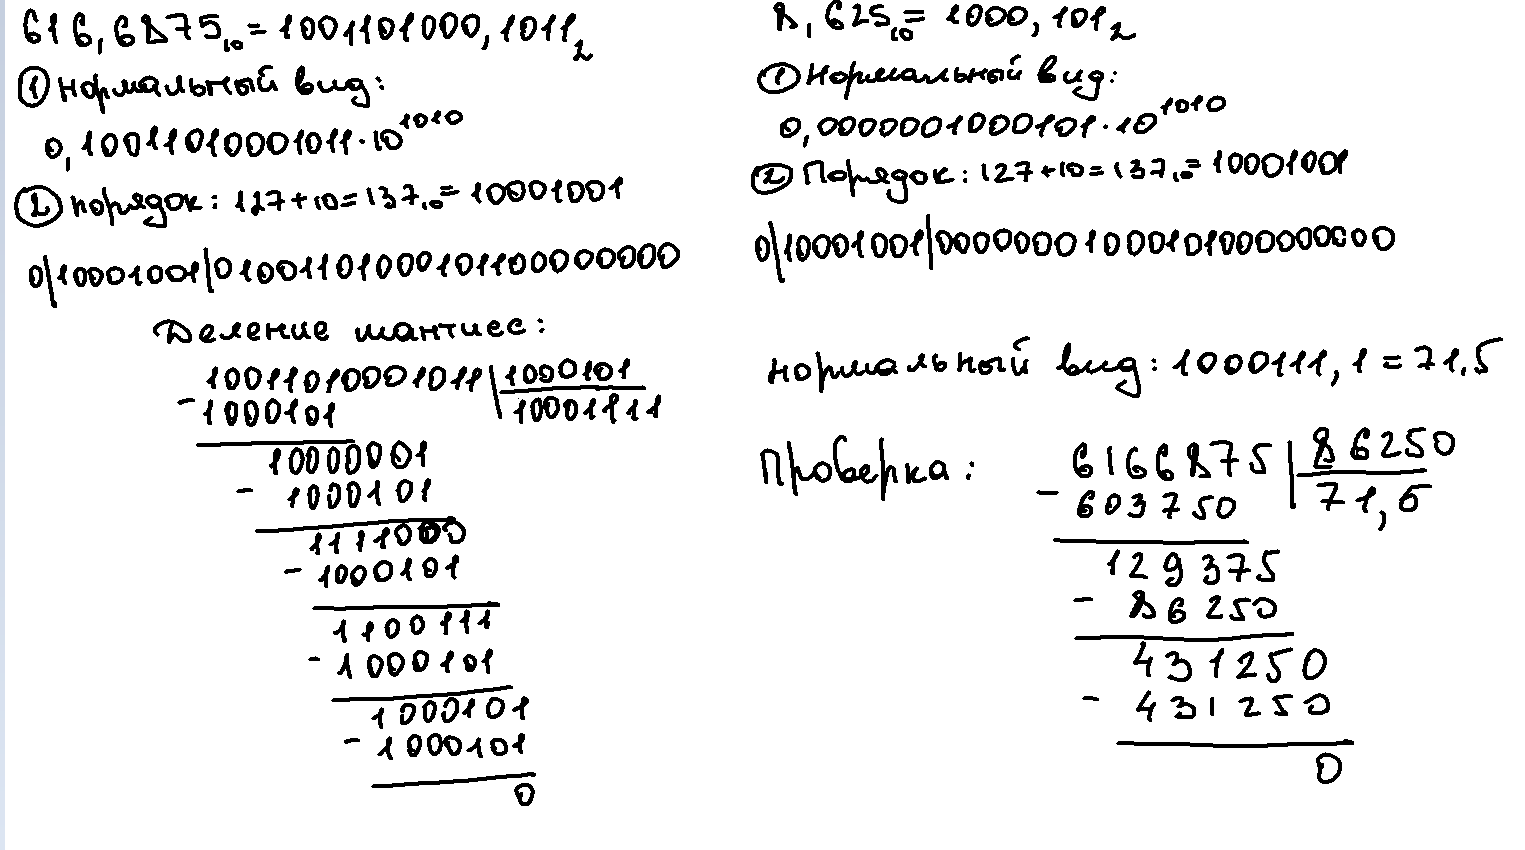 616,6875₁₀ = 1001101000,1011₂
① Нормальный вид:
0,10011010001011·10¹⁰¹⁰
② порядок: 127+10=137₁₀= 10001001
0|10001001|01001101000101100000000
Деление мантисс:
10011010001011 | 1000101
- 1000101 | 10001111
10000001
- 1000101
1111000
- 1000101
1100111
- 1000101
1000101
- 1000101
0
8,625₁₀ = 1000,101₂
① Нормальный вид:
0,0000001000101·10¹⁰¹⁰
② Порядок: 127+10=137₁₀= 10001001
0|10001001|00000001000101000000000
нормальный вид: 1000111,1 = 71,5
Проверка: 6166875 | 86250
- 603750 | 71,5
129375
- 86250
431250
- 431250
0